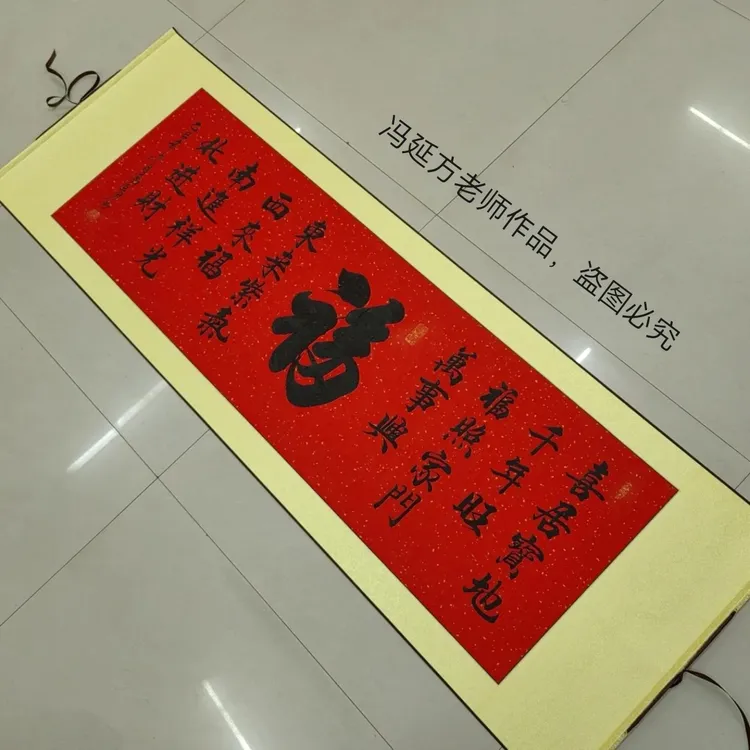 喜居寶地
千年旺
福照家門
萬事興
福
東来紫氣
西來福
南進祥光
北進財
冯延方老师作品，盗图必究